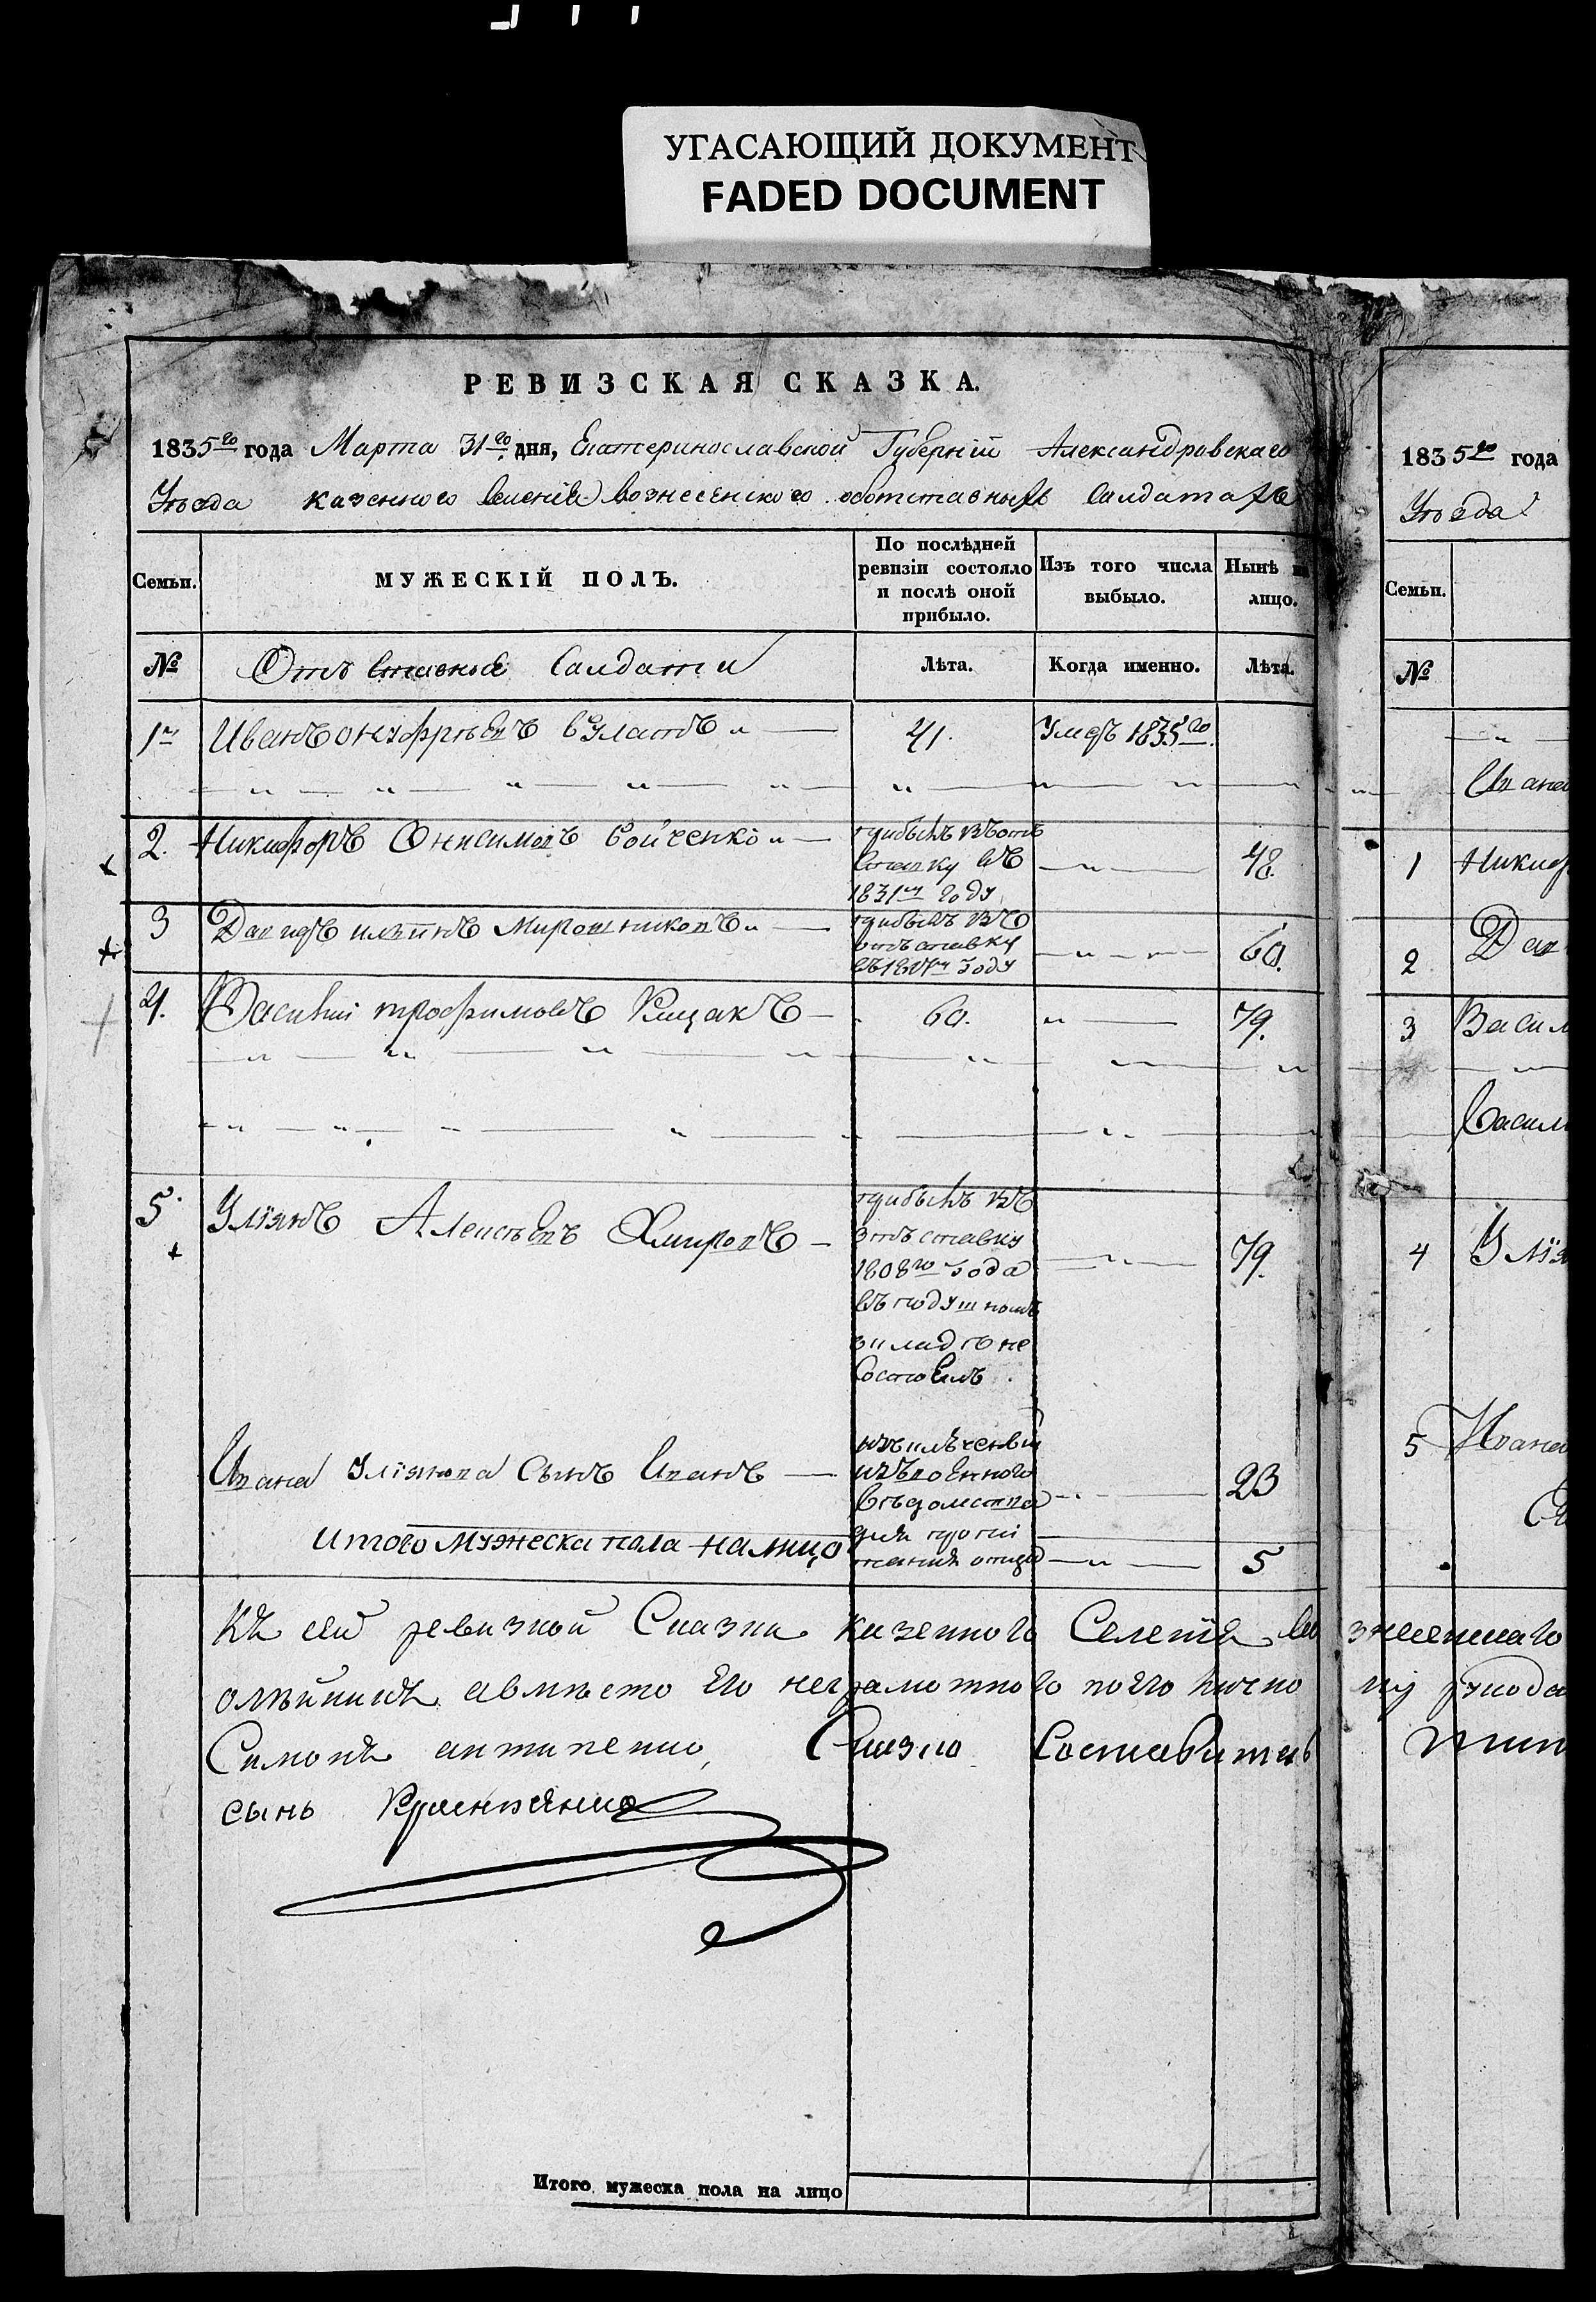 УГАСАЮЩИЙ ДОКУМЕНТ
FADED DOCUMENT
РЕВИЗСКАЯ СКАЗКА.
1835го года Марта 31го дня, Екатеринославской Губерніи Александровскаго
Уѣзда казенного селенія вознесенского объ отставныхъ Салдатахъ
Семьи.
МУЖЕСКІЙ ПОЛЪ.
По послѣдней ревизіи состояло и послѣ оной прибыло.
Изъ того числа выбыло.
Нынѣ на лицо.
№
Отъ Ставные Салдати
Лѣта.
Когда именно.
Лѣта.
1й Иванъ онуфріевъ 41. Умеръ 1835го
2. Никифоръ Онисимовъ бойченко прибылъ въ отъ 48.
ставку въ
1831м году
3 Давидъ ильинъ Мирошниковъ прибылъ въ 60.
отъ ставку
году
4. Василій трофимовъ Кицакъ 60. 79.
5. Уліянъ Алексѣевъ Хмировъ прибылъ въ 79.
отъ ставку
1808го года
въ подушномъ
окладѣ не
Состоялъ
Ивана Уліянова Сынъ Иванъ 23
изъ военного
вѣдомства
для пропи
танія отца
итого Мужеска пола на лицо 5
Къ сей ревизкой Сказки казенного Селенія вознесенскаго
олѣйникъ авмѣсто его неграмотного по его личной
Симонъ антипенко, Сказко Составитель
сынъ
Итого мужеска пола на лицо
1835го года
Уѣзда
Семьи.
№
1
2
3 Васил
4 Улія
5 Ивана